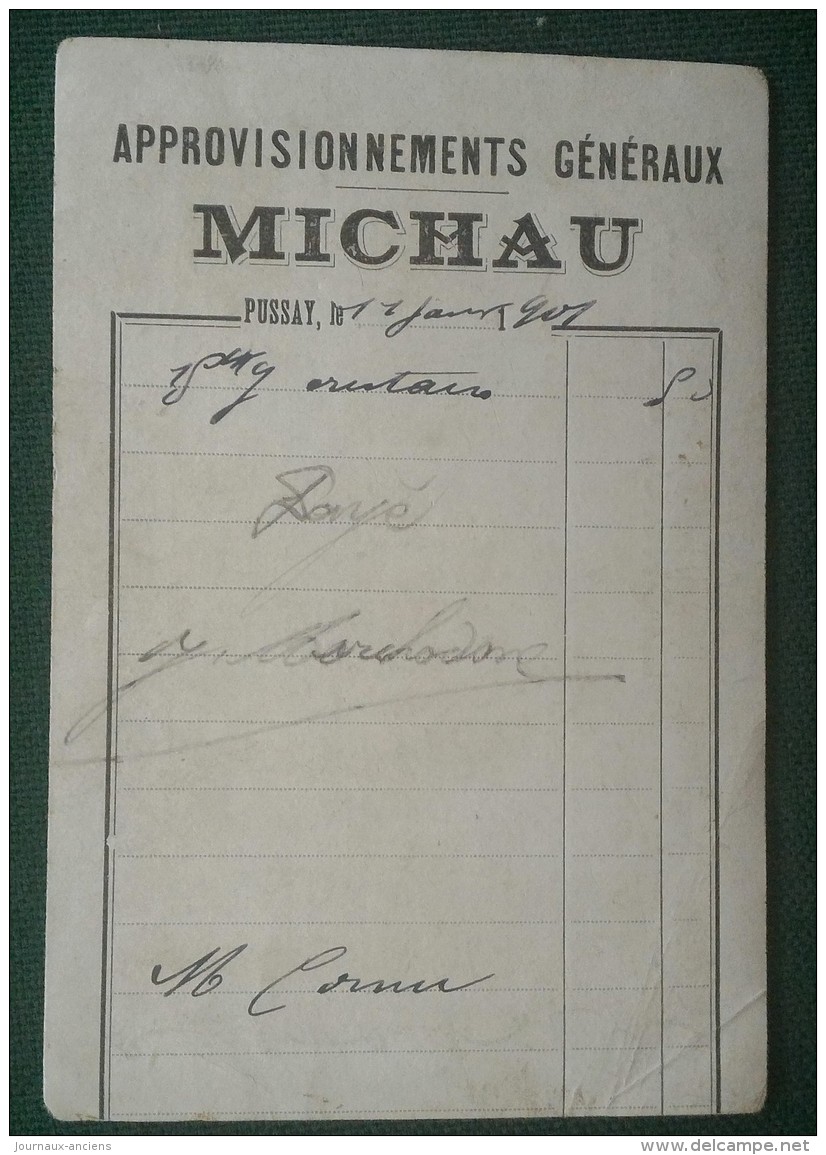 APPROVISIONNEMENTS GÉNÉRAUX
MICHAU
PUSSAY, le 11 Janv 1901
80
Payé
M Cornu
journaux-anciens
www.delcampe.net